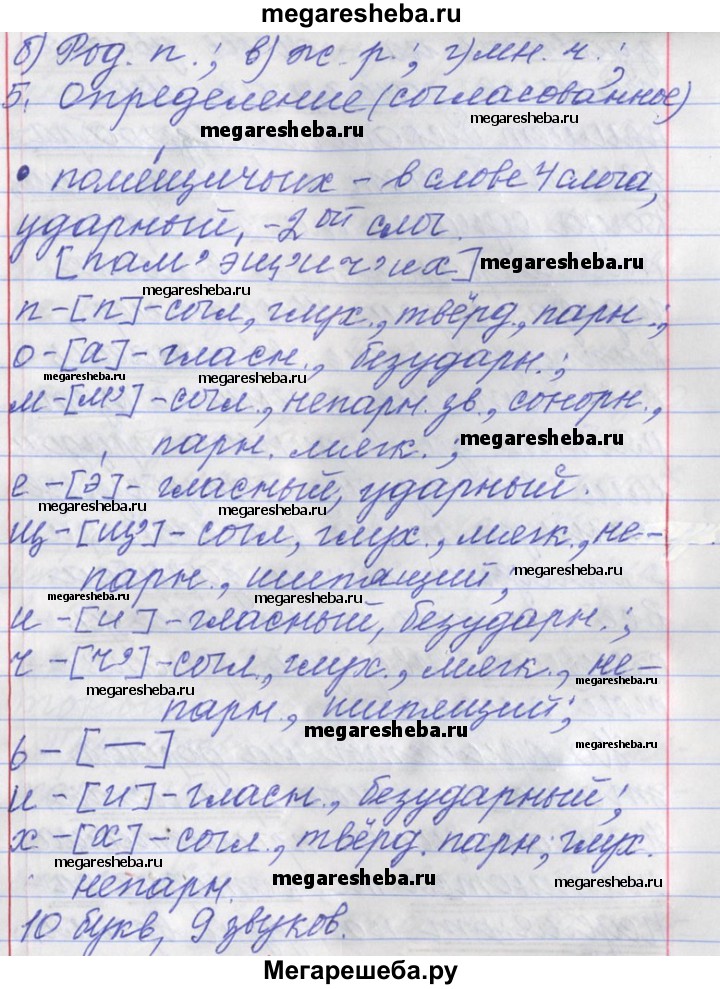 megaresheba.ru
б) Род. п.; в) ж. р.; г) мн. ч.;
5. Определение (согласованное)
megaresheba.ru megaresheba.ru
• помещичьих – в слове 4 слога,
ударный, – 2ой слог.
[пам’эщ’ич’их] megaresheba.ru
megaresheba.ru megaresheba.ru
п – [п] – согл., глух., твёрд., парн.;
о – [а] – гласн., безударн.;
megaresheba.ru megaresheba.ru
м – [м’] – согл., непарн. зв., сонорн.,
парн. мягк.; megaresheba.ru
е – [э] – гласный, ударный.
megaresheba.ru megaresheba.ru
щ – [щ’] – согл., глух., мягк., не-
парн., шипящий; megaresheba.ru
megaresheba.ru megaresheba.ru
и – [и] – гласный, безударн.;
ч – [ч’] – согл., глух., мягк., не-
megaresheba.ru megaresheba.ru
парн., шипящий;
megaresheba.ru
ь – [—] megaresheba.ru
и – [и] – гласн., безударный;
х – [х] – согл., твёрд. парн; глух.
megaresheba.ru megaresheba.ru
непарн. megaresheba.ru megaresheba.ru
10 букв, 9 звуков.
Мегарешеба.ру